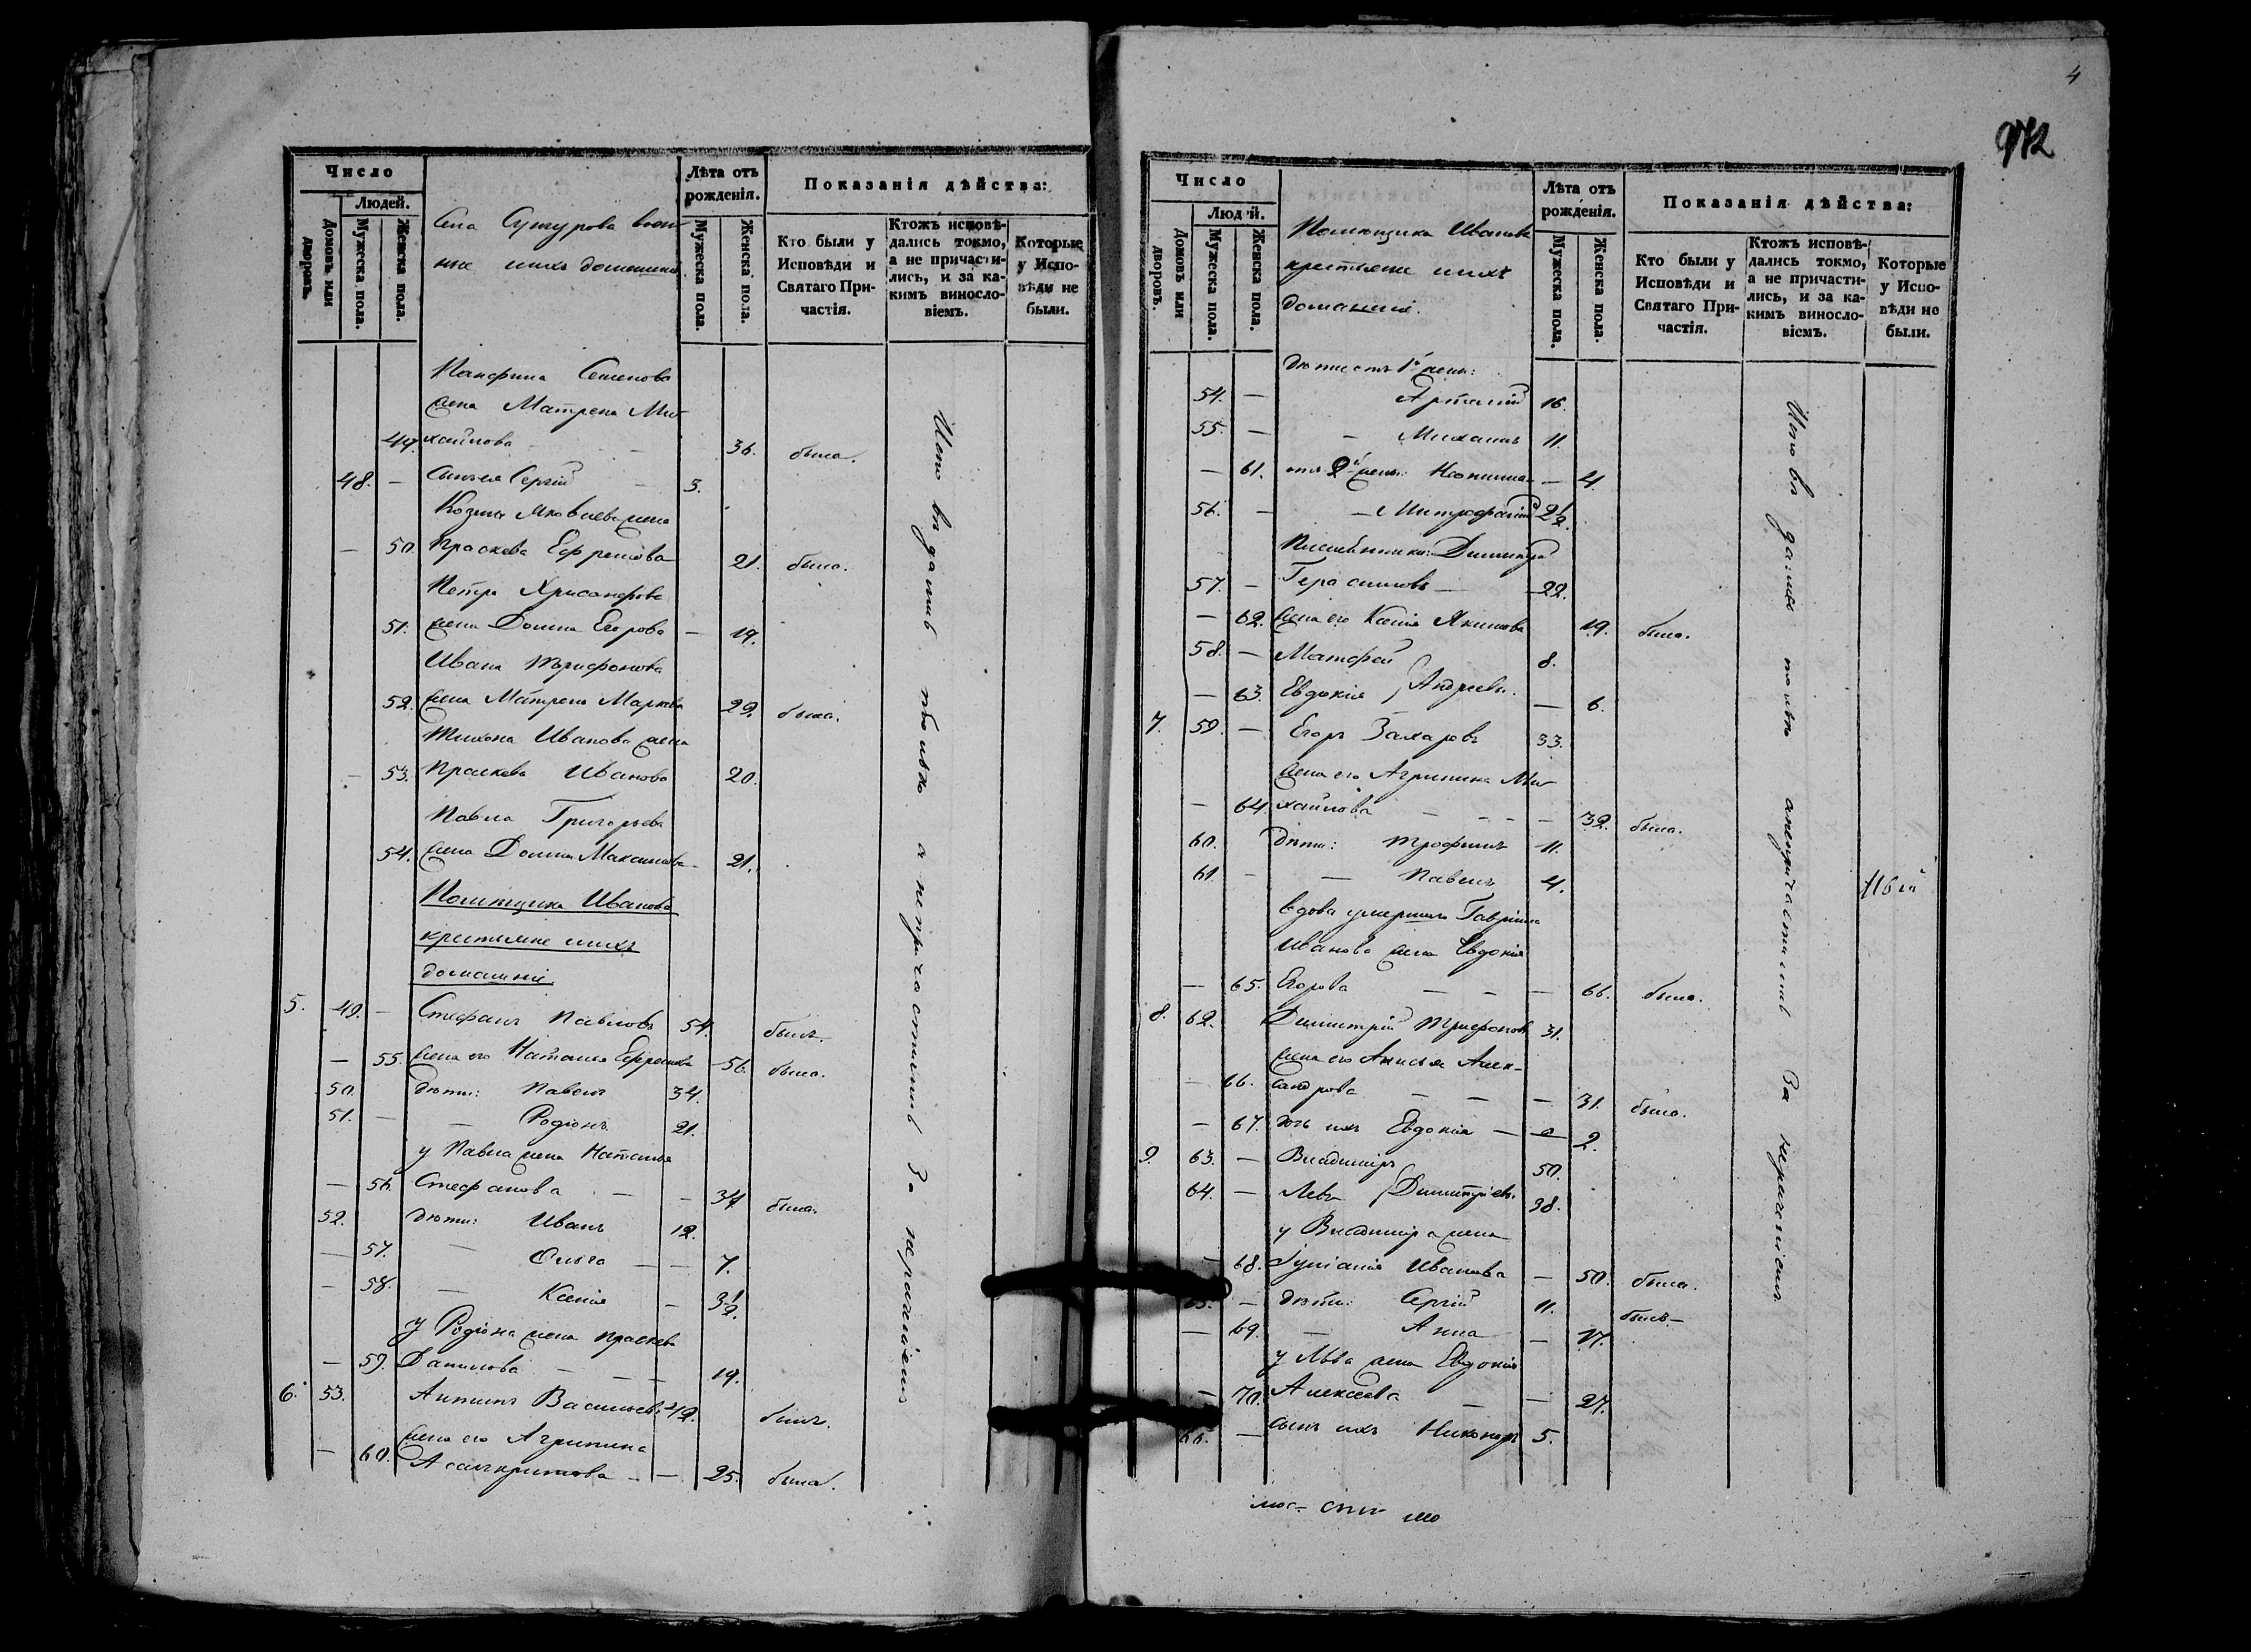 Число
Людей.
Домовъ или дворовъ.
Мужеска пола.
Женска пола.
Села Сутурова воен-
ные и ихъ домашніе
Лѣта отъ рожденія.
Мужеска пола.
Женска пола.
Показанія дѣйства:
Кто были у Исповѣди и Святаго Причастія.
Ктожъ исповѣ-
дались токмо,
а не причасти-
лись, и за ка-
кимъ винсло-
віемъ.
Которые
у Испо-
вѣди не
были.
Панфила Семенова
жена Матрена Ми-
49. хайлова 36. была.
48. — сынъ ея Сергій 3.
Козмы Яковлева жена
— 50. Праскева Ефремова 21. была.
Петра Хрисанфова
51. жена Домна Егорова — 19.
Ивана Трифонова
52. жена Матрена Маркова 22. была.
Тихона Иванова жена
— 53. Праскева Иванова 20.
Павла Григорьева
54. жена Домна Максимова 21.
Помѣщика Иванова
крестьяне и ихъ
домашніе.
5. 49. — Стефанъ Павловъ 54. былъ.
— 55. жена его Наталья Ефремова 56. была.
50. дѣти: Павелъ 34.
51. — — Родіонъ 21.
у Павла жена Наталья
— 56. Стефанова — — 34. была.
52. дѣти: Иванъ 12.
— 57. — Ольга — — 7.
— 58. — Ксенія — 3½.
у Родіона жена Праскева
— 59. Данилова — — — 19.
6. 53. Антипъ Васильевъ 42. былъ.
жена его Агрипина
— 60. Асинкритова — — 25. была.
Исповѣдались только а не причастились за нераченіемъ
4
972
Число
Людей.
Домовъ или дворовъ.
Мужеска пола.
Женска пола.
Помѣщика Иванова
крестьяне и ихъ
домашніе.
Лѣта отъ рожденія.
Мужеска пола.
Женска пола.
Показанія дѣйства:
Кто были у Исповѣди и Святаго Причастія.
Ктожъ исповѣ-
дались токмо,
а не причасти-
лись, и за ка-
кимъ винсло-
віемъ.
Которые
у Испо-
вѣди не
были.
дѣти отъ 1й жены:
54. — Артемій 16.
55. — — Михаилъ 11.
— 61. отъ 2й жены: Неонила — 4.
56. — — Митрофаній 2½.
Племянники: Димитрій
57. — Герасимовъ — 22.
— 62. жена его Ксенія Якимова 19. была.
58. — Матфей 8.
— 63. Евдокія Андреевы. — 6.
7. 59. — Егоръ Захаровъ 33.
жена его Агрипина Ми-
— 64. хайлова — — — — 32. была.
60. дѣти: Трофимъ 11.
61. — — Павелъ 4.
вдова умершаго Гавріила
Иванова жена Евдокія
— 65. Егорова — — — 66. была.
8. 62. Димитрій Трифоновъ 31.
жена его Анисья Алек-
— 66. сандрова — — — 31. была.
— 67. дочь ихъ Евдокія — — 2.
9. 63. — Владиміръ 50.
64. — Левъ Димитріевы 38.
у Владиміра жена
— 68. Іуліанія Иванова — 50. была.
65. — дѣти: Сергій 11. былъ —
— 69. — Анна — 17.
у Льва жена Евдокія
— 70. Алексѣева — — 27.
66. — сынъ ихъ Никоноръ 5.
Исповѣдались только а не причастились за нераченіемъ